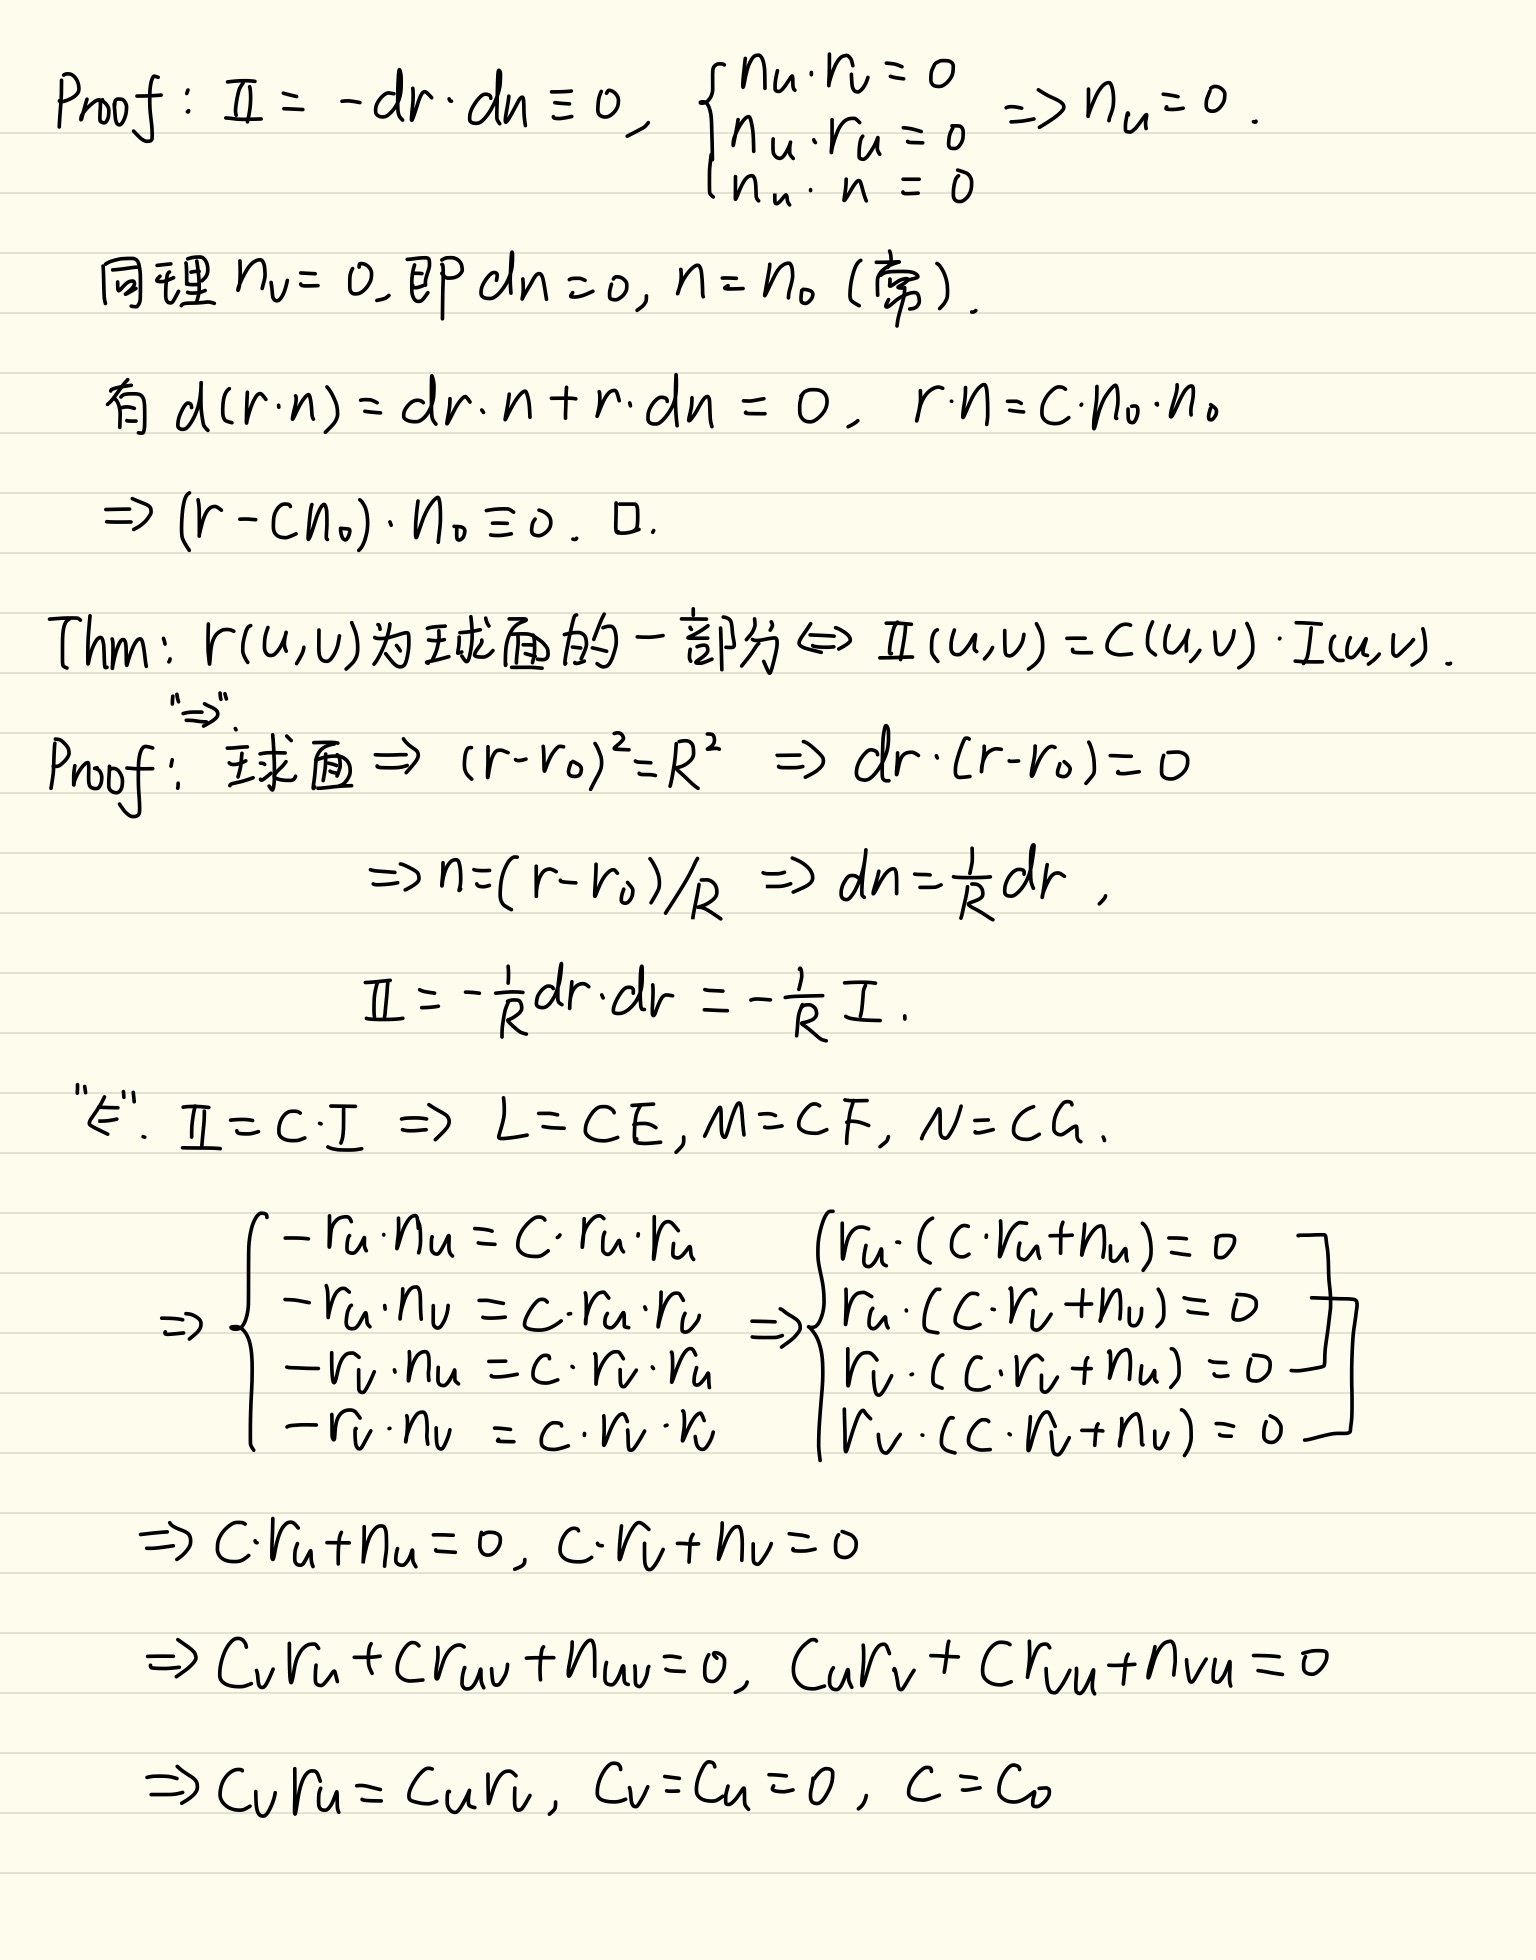 Proof: Ⅱ = -dr·dn ≡ 0, { n_u·r_v = 0
n_u·r_u = 0
n_u·n = 0 => n_u = 0.
同理 n_v = 0, 即 dn = 0, n = n_0 (常).
有 d(r·n) = dr·n + r·dn = 0, r·n = c·n_0·n_0
=> (r - cn_0)·n_0 ≡ 0. □.
Thm: r(u,v)为球面的一部分 <=> Ⅱ(u,v) = C(u,v)·I(u,v).
"=>".
Proof: 球面 => (r-r_0)² = R² => dr·(r-r_0) = 0
=> n = (r-r_0)/R => dn = 1/R dr,
Ⅱ = -1/R dr·dr = -1/R I.
"<=". Ⅱ = C·I => L = CE, M = CF, N = CG.
=> { -r_u·n_u = C·r_u·r_u => { r_u·(C·r_u+n_u) = 0
-r_u·n_v = C·r_u·r_v r_u·(C·r_v+n_v) = 0
-r_v·n_u = C·r_v·r_u r_v·(C·r_v+n_u) = 0
-r_v·n_v = C·r_v·r_v r_v·(C·r_v+n_v) = 0
=> C·r_u+n_u = 0, C·r_v+n_v = 0
=> C_v r_u + C r_uv + n_uv = 0, C_u r_v + C r_vu + n_vu = 0
=> C_v r_u = C_u r_v, C_v = C_u = 0, C = C_0